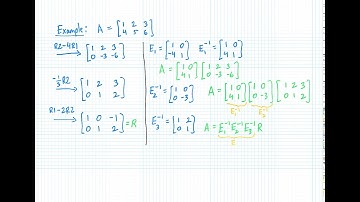 Example: A = [1 2 3; 4 5 6]
R2-4R1 → [1 2 3; 0 -3 -6]
-1/3 R2 → [1 2 3; 0 1 2]
R1-2R2 → [1 0 -1; 0 1 2] = R
E₁ = [1 0; -4 1] E₁⁻¹ = [1 0; 4 1]
A = [1 0; 4 1] [1 2 3; 0 -3 -6]
E₂⁻¹ = [1 0; 0 -3] A = [1 0; 4 1] [1 0; 0 -3] [1 2 3; 0 1 2]
E₁⁻¹ E₂⁻¹
E₃⁻¹ = [1 2; 0 1] A = E₁⁻¹ E₂⁻¹ E₃⁻¹ R
E